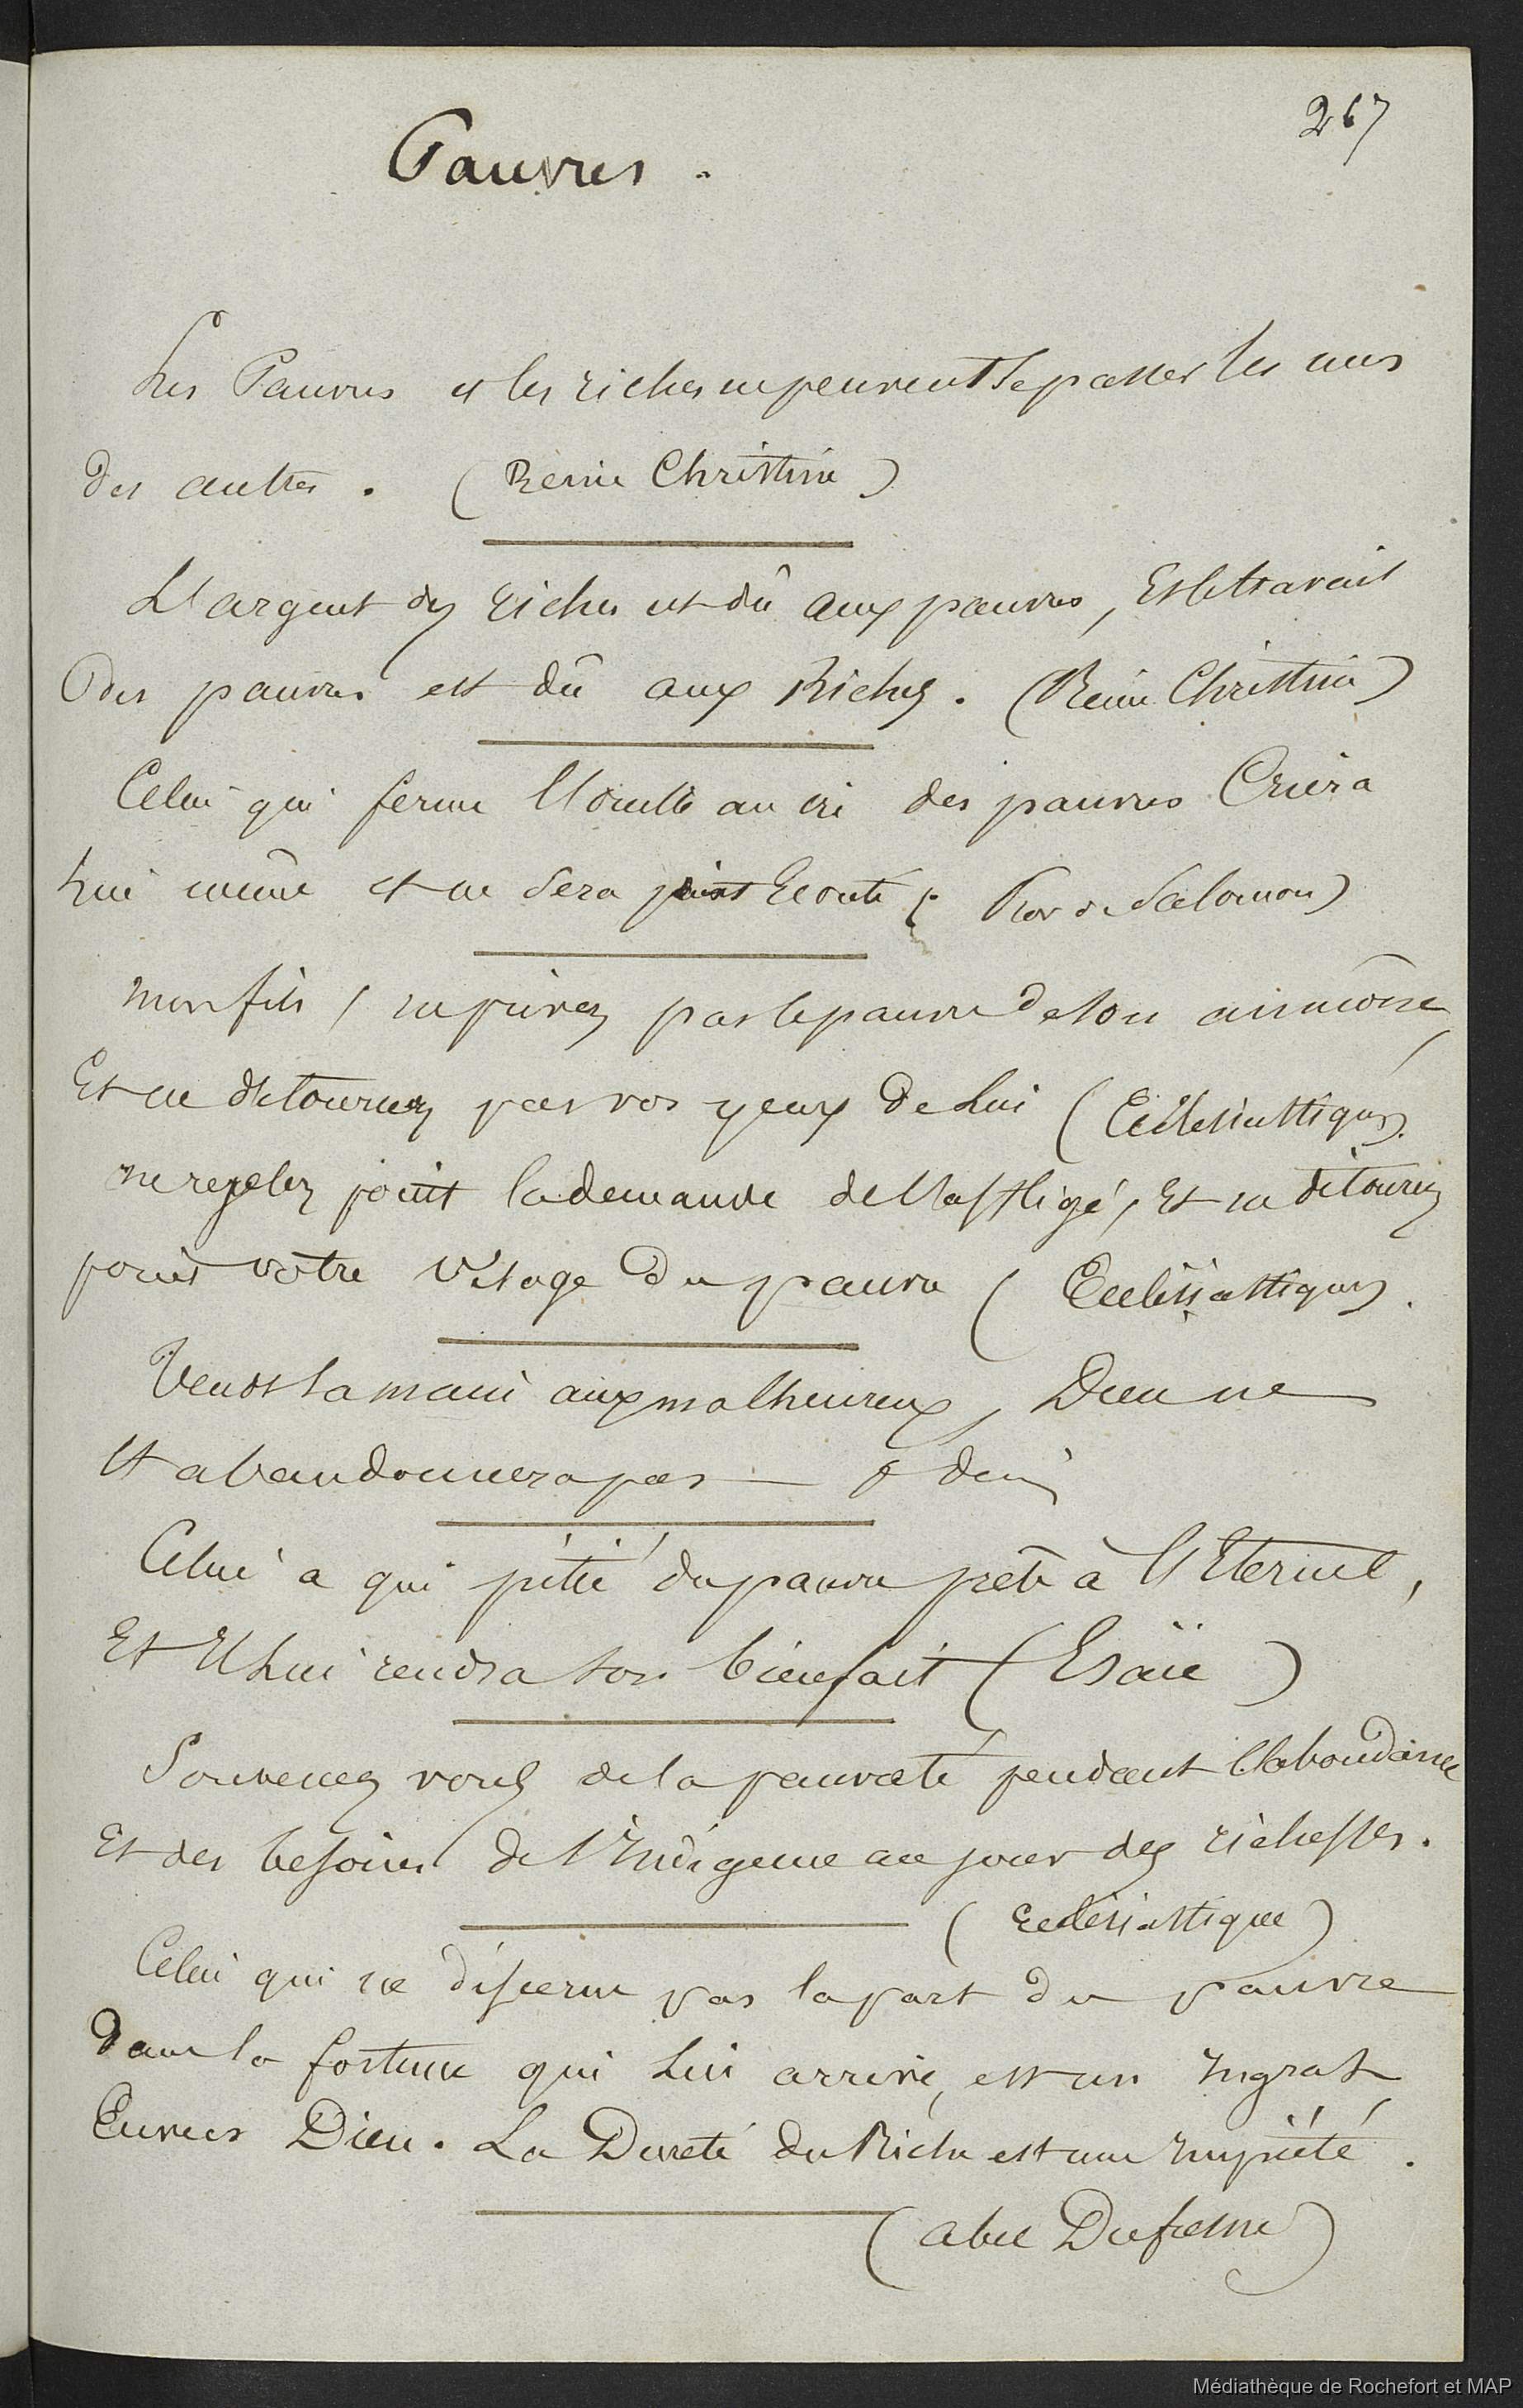 267
Pauvres.
Les Pauvres et les riches ne peuvent se passer les uns
des autres. (Reine Christine)
L'argent des riches est dû aux pauvres, Et le travail
des pauvres est dû aux Riches. (Reine Christine)
Celui qui ferme l'oreille au cri des pauvres Criera
Lui même et ne sera point Ecouté (Prov de Salomon)
mon fils, ne privez pas le pauvre de son aumône,
Et ne détournez pas vos yeux de Lui (Ecclésiastique).
ne rejetez point la demande de l'affligé, Et ne détournez
point votre visage du pauvre (Ecclésiastique).
Tends ta main aux malheureux, Dieu ne
t'abandonnera pas —
Celui a qui pitié du pauvre prête à l'Eternel,
Et Il Lui rendra son bienfait (Esaïe)
Souvenez vous de la pauvreté pendant l'abondance
Et des besoins de l'Indigence au jour des richesses.
(Ecclésiastique)
Celui qui ne discerne pas la part du pauvre
Dans la fortune qui Lui arrive, est un Ingrat
Envers Dieu. La Dureté du Riche est une Impiété.
(abel Dufresne)
Médiathèque de Rochefort et MAP